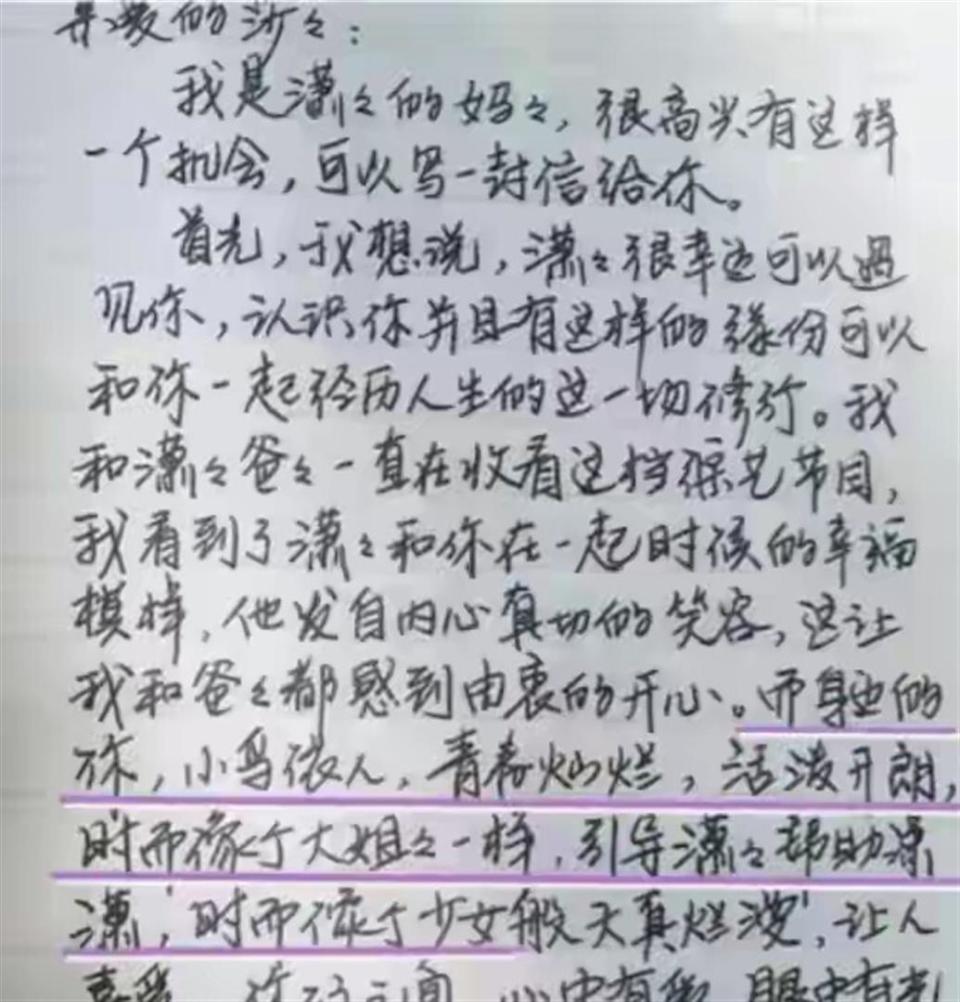 亲爱的沙々：
我是潇々的妈々，很高兴有这样
一个机会，可以写一封信给你。
首先，我想说，潇々很幸运可以遇
见你，认识你并且有这样的缘份可以
和你一起经历人生的这一切修行。我
和潇々爸々一直在收看这档综艺节目，
我看到了潇々和你在一起时候的幸福
模样，他发自内心真切的笑容，这让
我和爸々都感到由衷的开心。而身边的
你，小鸟依人，青春灿烂，活泼开朗，
时而像个大姐々一样，引导潇々帮助潇
潇，时而像个少女般天真烂漫，让人
心中有 眼中有